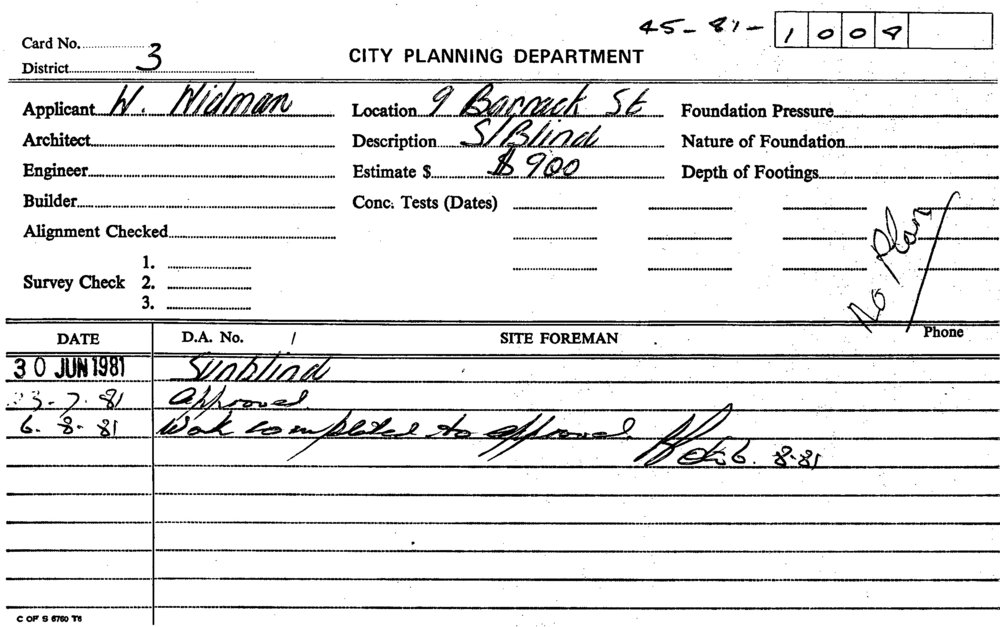 45-81-1004
Card No.
District 3
CITY PLANNING DEPARTMENT
Applicant W. Widman
Location 9 Barrack St
Foundation Pressure
Architect
Description S/Blind
Nature of Foundation
Engineer
Estimate $ $900
Depth of Footings
Builder
Conc. Tests (Dates)
Alignment Checked
No Plan
Survey Check 1.
2.
3.
Phone
DATE D.A. No. / SITE FOREMAN
30 JUN 1981 Sunblind
23-7-81 Approved
6-8-81 Work completed to approval.
6.8.81
C OF S 6760 T6